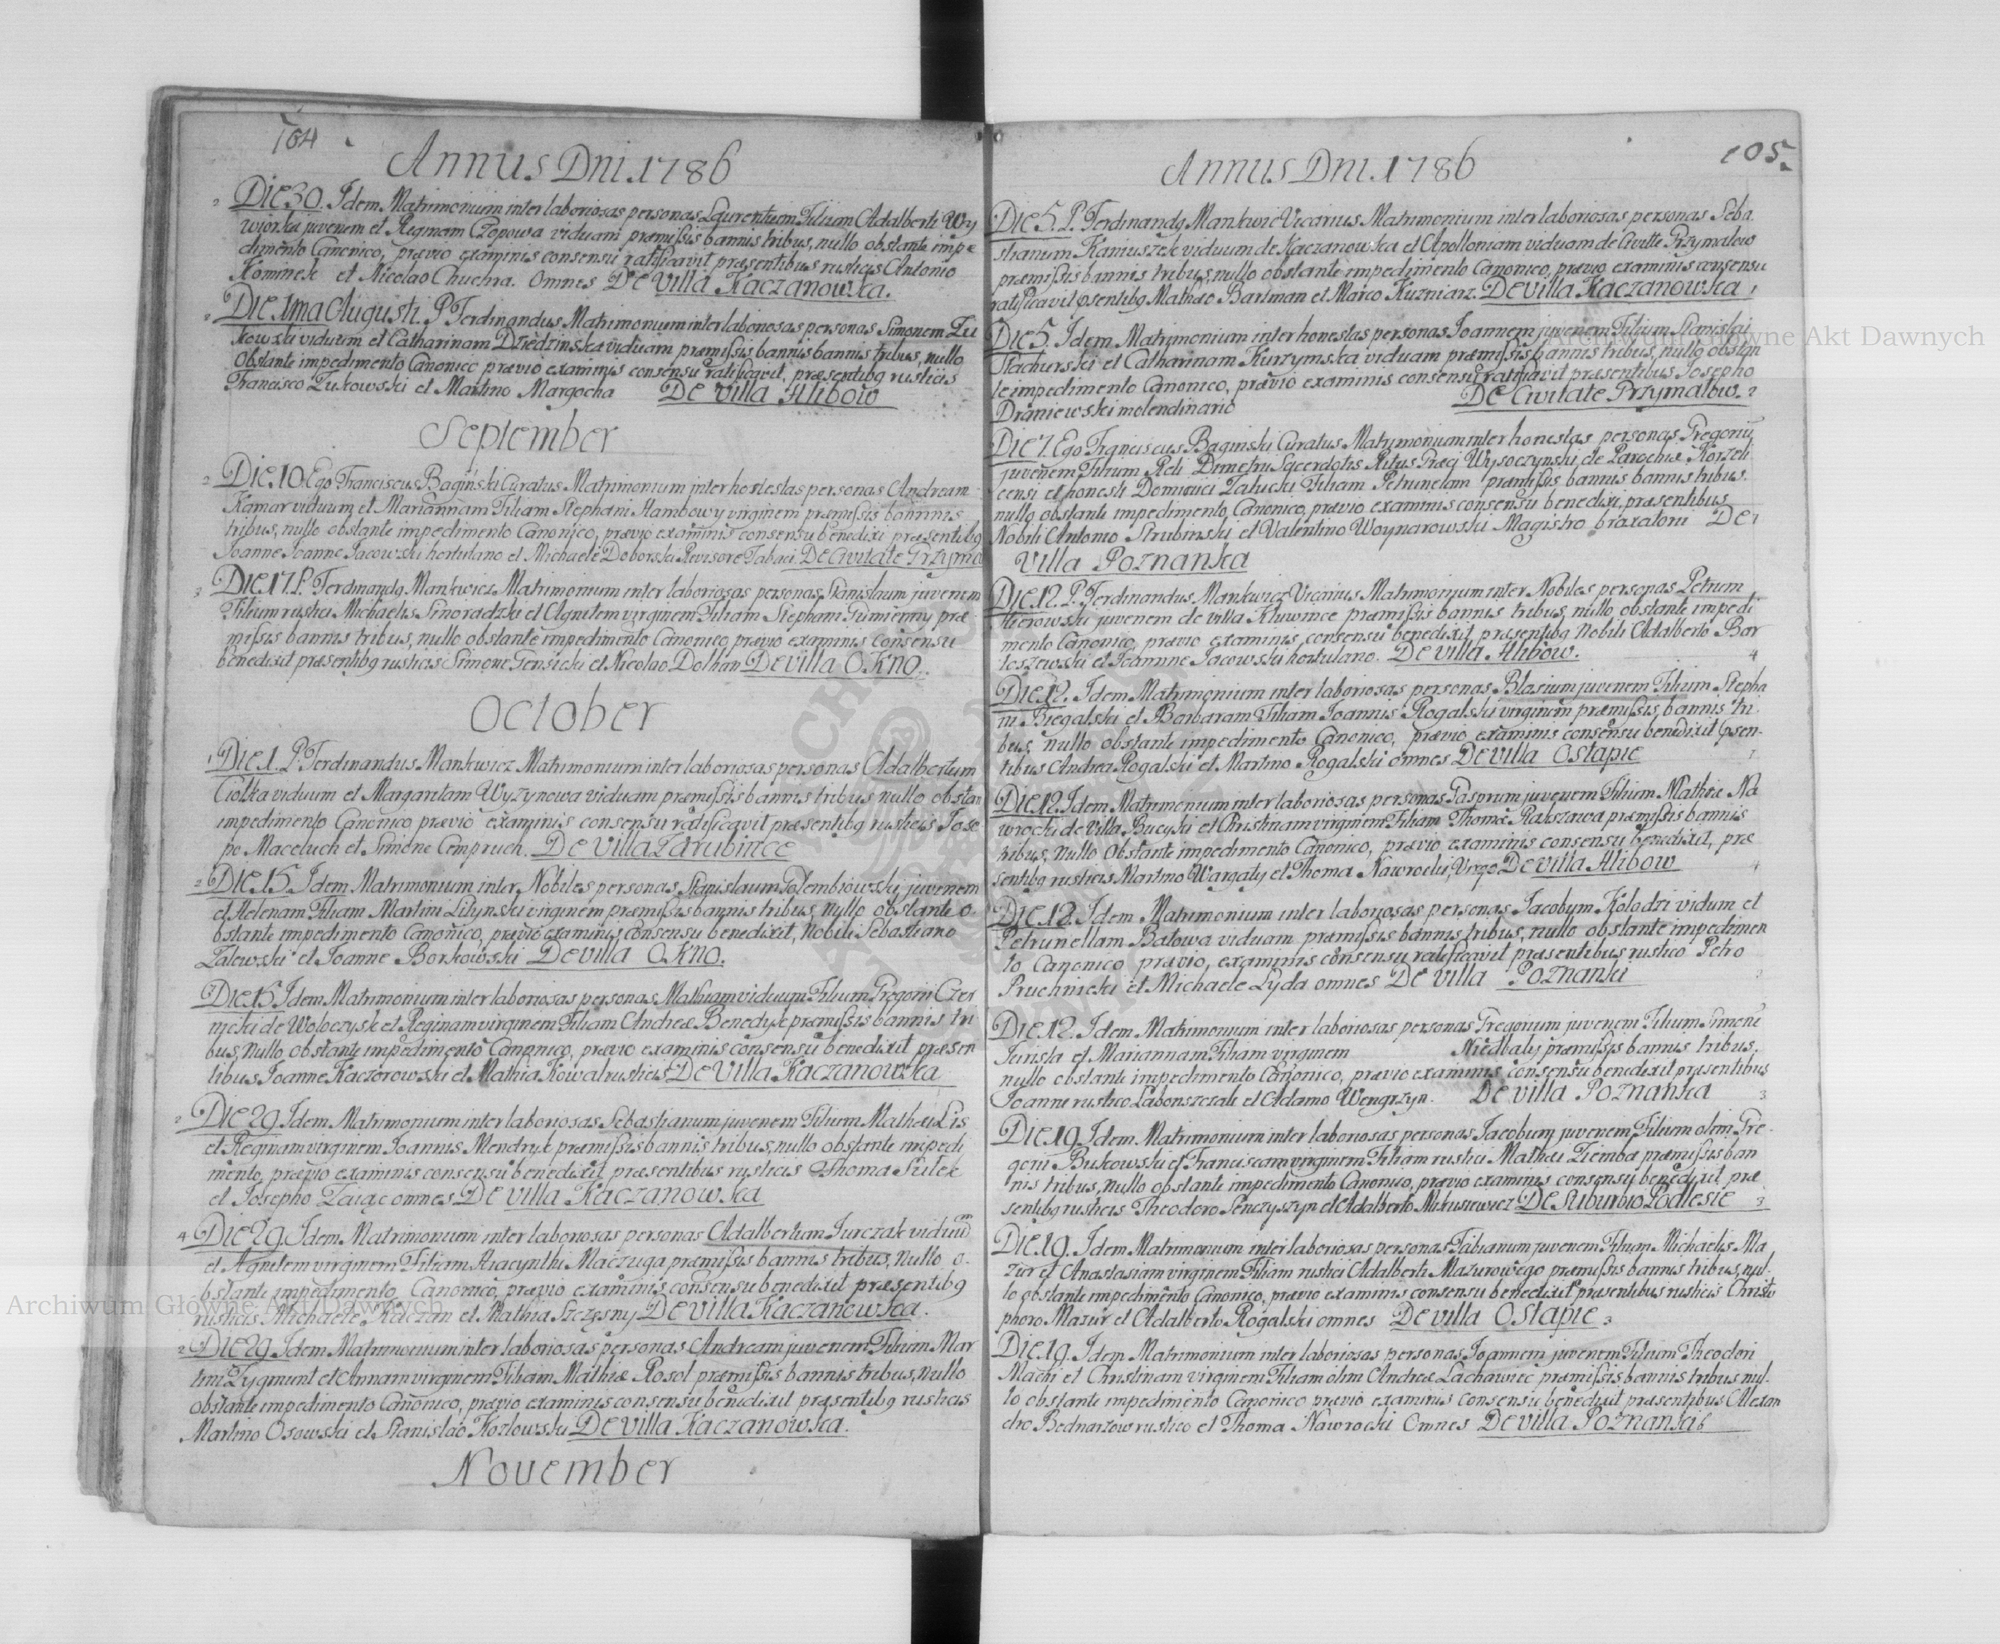 104
Annus Dni. 1786
2 Die 30. Idem Matrimonium inter laboriosas personas Laurentium Filium Adalberti Wy
wiorka juvenem et Reginam Czopowa viduam præmissis bannis tribus, nullo obstante impe
dimento Canonico, prævio examinis consensu ratificavit præsentibus rusticis Antonio
Kominek et Nicolao Chuchra. Omnes De Villa Kaczanowka.
Die 1ma Augusti. P. Ferdinandus Matrimonium inter laboriosas personas Simonem Zu
kowski viduum et Catharinam Dziedzinska viduam præmissis bannis bannis tribus, nullo
Obstante impedimento Canonico prævio examinis consensu ratificavit, præsentibq rusticis
Francisco Zukowski et Martino Margocha De Villa Alibow
September
2 Die. 10. Ego Franciscus Baginski Curatus Matrimonium inter honestas personas Andream
Kamar viduum et Mariannam Filiam Stephani Hambowy virginem præmissis bannis
tribus, nullo obstante impedimento Canonico, prævio examinis consensu benedixi præsentibq
Joanne Joanne Jacowski hortulano et Michaele Doborski Revisore Tabaci De Civitate Grzyma
3 Die 17. P. Ferdinandq Mankwicz Matrimonium inter laboriosas personas Stanislaum juvenem
Filium rustici Michaelis Sinoradzki et Agnetem virginem Filiam Stephani Gumienny præ
missis bannis tribus, nullo obstante impedimento Canonico, prævio examinis consensu
benedixit præsentibq rusticis Simone Gensicki et Nicolao Dolhan De Villa OKNO.
October
1 Die 1. P. Ferdinandus Mankwicz Matrimonium inter laboriosas personas Adalbertum
Ciolka viduum et Margaretam Wyzynowa viduam præmissis bannis tribus nullo obstan
impedimento Canonico prævio examinis consensu ratificavit præsentibq rusticis Jose
po Maceluch et Simone Compruch. De Villa Zarubince
2 Die 15. Idem Matrimonium inter Nobiles personas Stanislaum Golembiowski juvenem
et Helenam Filiam Martini Lilynski virginem præmissis bannis tribus, Nullo obstante o-
bstante impedimento Canonico, prævio examinis consensu benedixit, Nobili Sebastiano
Zalewski et Joanne Borkowski De Villa OKNO.
Die 15 Idem Matrimonium inter laboriosas personas Mathiam viduum Filium Gregorii Czer
nicki de Woloczysk et Reginam virginem Filiam Andreæ Benedyk præmissis bannis tri
bus, Nullo obstante impedimento Canonico, prævio examinis consensu benedixit præsen
tibus Joanne Kaczorowski et Mathia Kowal rusticis De Villa Kaczanowka
2 Die 29. Idem Matrimonium inter laboriosas Sebastianum juvenem Filium Mathæi Lis
et Reginam virginem Joannis Mendryk præmissis bannis tribus, nullo obstante impedi
mento, prævio examinis consensu benedixit præsentibus rusticis Thoma Pulek
et Josepho Zaiąc omnes De Villa Kaczanowka
4 Die 29. Idem Matrimonium inter laboriosas personas Adalbertum Jurczak viduum
et Agnetem virginem Filiam Hiacynthi Maczuga præmissis bannis tribus, Nullo o-
bstante impedimento Canonico, prævio examinis consensu benedixit præsentibq
rusticis Michaele Kaczan et Mathia Szczęsny De Villa Kaczanowka.
2 Die 29. Idem Matrimonium inter laboriosas personas Andream juvenem Filium Mar
tini Zygmunt et Annam virginem Filiam Mathiæ Rosol præmissis bannis tribus, Nullo
obstante impedimento Canonico, prævio examinis consensu benedixit præsentibq rusticis
Martino Osowski et Stanislao Kozlowski De Villa Kaczanowka.
November
105.
Annus Dni. 1786
Die 5. P. Ferdinandq Mankwic Vicarius Matrimonium inter laboriosas personas Seba.
stianum Kaniuszek viduum de Kaczanowka et Apolloniam viduam de Civitte Grzymalow
præmissis bannis tribus, nullo obstante impedimento Canonico, prævio examinis consensu
ratificavit psentibq Mathæo Bartman et Marco Kuzniarz. De Villa Kaczanowka 1
Die 5. Idem Matrimonium inter honestas personas Joannem juvenem Filium Stanislai
Stachurski et Catharinam Kurzymska viduam præmissis bannis tribus, nullo obstan
te impedimento Canonico, prævio examinis consensu ratificavit præsentibus Josepho
Draniewski molendinario De Civitate Grzymalow. 2
Die 7. Ego Franciscus Baginski Curatus Matrimonium inter honestas personas Gregoriu
juvenem Filium Rdi Dimetri Sacerdotis Ritus Græci Wysoczynski de Parochia Korzeli
censi et honesti Dominici Zalucki Filiam Petrunelam præmissis bannis bannis tribus.
nullo obstante impedimento Canonico, prævio examinis consensu benedixi, præsentibus
Nobili Antonio Strubinski et Valentino Woynarowski Magistro braxatorii De 1
Villa Poznanka
Die 12. P. Ferdinandus Mankwicz Vicarius Matrimonium inter Nobiles personas Petrum
Hicrowski juvenem de villa Kluwince præmissis bannis tribus, nullo obstante impedi
mento Canonico, prævio examinis, consensu benedixit præsentibq Nobili Adalberto Bar
toszewski et Joannne Jacowski hortulano. De Villa Alibow. 4
Die 12. Idem Matrimonium inter laboriosas personas Blasium juvenem Filium Stepha
ni Biegalski et Barbaram Filiam Joannis Rogalski virginem præmissis bannis tri-
bus, nullo obstante impedimento Canonico, prævio examinis consensu benedixit psen-
tibus Andrea Rogalski et Martino Rogalski omnes De Villa Ostapie 1
Die 12. Idem Matrimonium inter laboriosas personas Gasprum juvenem Filium Mathiæ Na
wrocki de Villa Bucyki et Christinam virginem Filiam Thomæ Rakszawa præmissis bannis
tribus, Nullo Obstante impedimento Canonico, prævio examinis consensu benedixit, præ
sentibq rusticis Martino Wargaty et Thoma Nawrocki, Virgo De Villa Alibow 4
Die 12. Idem Matrimonium inter laboriosas personas Jacobum Kolodzi vidum et
Petrunellam Batowa viduam præmissis bannis tribus, nullo obstante impedimen
to Canonico prævio, examinis consensu ratificavit præsentibus rustico Petro
Pruchnicki et Michaele Lyda omnes De Villa Poznanki 2
Die 12. Idem Matrimonium inter laboriosas personas Gregorium juvenem Filium Simone
Jurisla et Mariannam Filiam virginem Niedbaly præmissis bannis tribus.
nullo obstante impedimento Canonico, prævio examinis consensu benedixit præsentibus
Joanne rustico Labonszczak et Adamo Wengrzyn. De Villa Poznanka 3
Die 19. Idem Matrimonium inter laboriosas personas Jacobum juvenem Filium olim Gre-
gorii Bukowski et Franciscam virginem Filiam rustici Mathæi Ziemba præmissis ban
nis tribus, nullo obstante impedimento Canonico, prævio examinis consensu benedixit præ
sentibq rusticis Theodoro Penczyszyn et Adalberto Mikusiewicz De Suburbio Podlesie 3
Die 19. Idem Matrimonium inter laboriosas personas Fabianum juvenem Filium Michaelis Ma
zur et Anastasiam virginem Filiam rustici Adalberti Mazurowego præmissis bannis tribus, nul-
lo obstante impedimento Canonico, prævio examinis consensu benedixit præsentibus rusticis Christo
phoro Mazur et Adalberto Rogalski omnes De Villa Ostapie 3
Die 19. Idem Matrimonium inter laboriosas personas Joannem juvenem Filium Theodori
Machi et Christinam virginem Filiam olim Andreæ Lachowiec præmissis bannis tribus nul-
lo obstante impedimento Canonico prævio examinis consensu benedixit præsentibus Alexan
dro Bednarzow rustico et Thoma Nawrocki Omnes De Villa Poznanka 6
Archiwum Główne Akt Dawnych
Archiwum Główne Akt Dawnych